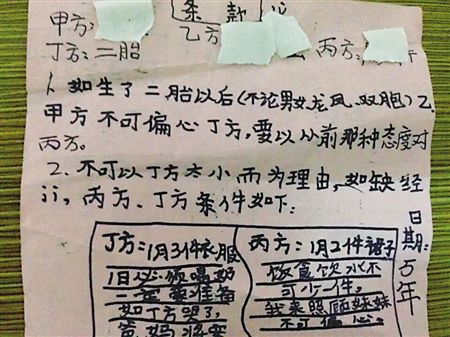 条款
甲方: 乙方 丙方:
丁方:二胎
1. 如生了二胎以后(不论男女龙凤、双胞)乙.
甲方不可偏心丁方,要以从前那种态度对
丙方。
2. 不可以丁方太小而为理由,如缺经
济,丙方、丁方条件如下:
丁方:1月3件衣服
1日必须喝奶
一定要准备
如丁方哭了,
爸妈将要
丙方:1月2件裙子
饭食饮水不
可少一件。
我来照顾妹妹
不可偏心。
日期:5年